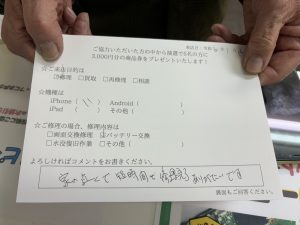 ご協力いただいた方の中から抽選で5名の方に
3,000円分の商品券をプレゼントいたします!
☆ご来店目的は
☑修理 □買取 □再修理 □相談
☆機種は
iPhone( ) Android( )
iPad( ) その他( )
☆ご修理の場合、修理内容は
□画面交換修理 ☑バッテリー交換
□水没復旧作業 □その他( )
よろしければコメントをお書きください。
短時間で ありがたいです
裏面もご回答ください。